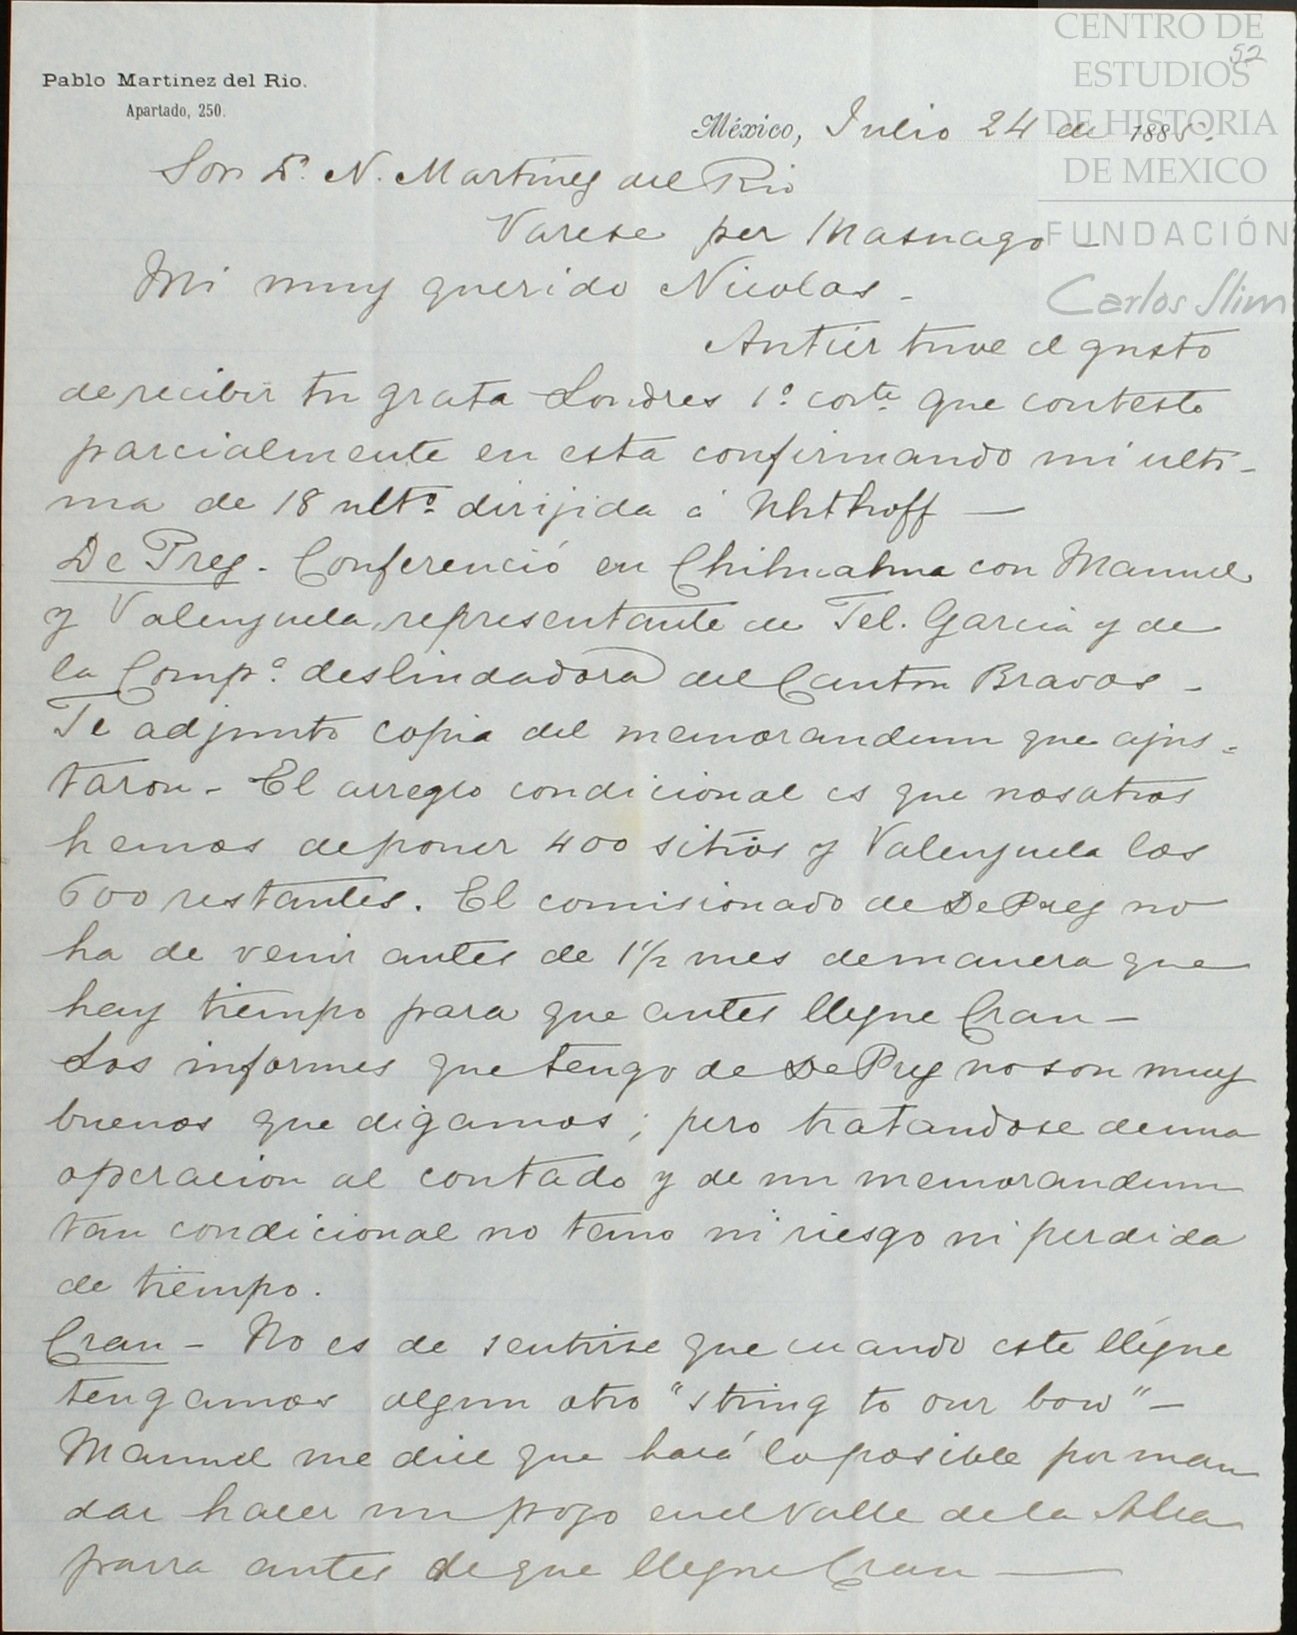 CENTRO DE
ESTUDIOS
DE HISTORIA
DE MEXICO
FUNDACIÓN
Carlos Slim
52
Pablo Martinez del Rio.
Apartado, 250.
México, Julio 24 de 1885.
Sor. D. N. Martinez del Rio
Varese per Masnago -
Mi muy querido Nicolas -
Antier tuve el gusto
de recibir tu grata Londres 1º. corte. que contesto
parcialmente en esta confirmando mi ulti-
ma de 18 ulto. dirijida á Uhthoff —
De Prez - Conferenció en Chihuahua con Manuel
y Valenzuela, representante de Tel. Garcia y de
la Compa. deslindadora del Canton Bravos -
Te adjunto copia del memorandum que ajus-
taron - El arreglo condicional es que nosotros
hemos de poner 400 sitios y Valenzuela los
600 restantes. El comisionado de De Prez no
ha de venir antes de 1 1/2 mes de manera que
hay tiempo para que antes llegue Cran -
Los informes que tengo de De Prez no son muy
buenos que digamos; pero tratandose de una
operacion al contado y de un memorandum
tan condicional no temo ni riesgo ni perdida
de tiempo.
Cran - No es de sentirse que cuando este llegue
tengamos algun otro "string to our bow" -
Manuel me dice que hará lo posible por man
dar hacer un pozo en el Valle de la Alca
parra antes de que llegue Cran —